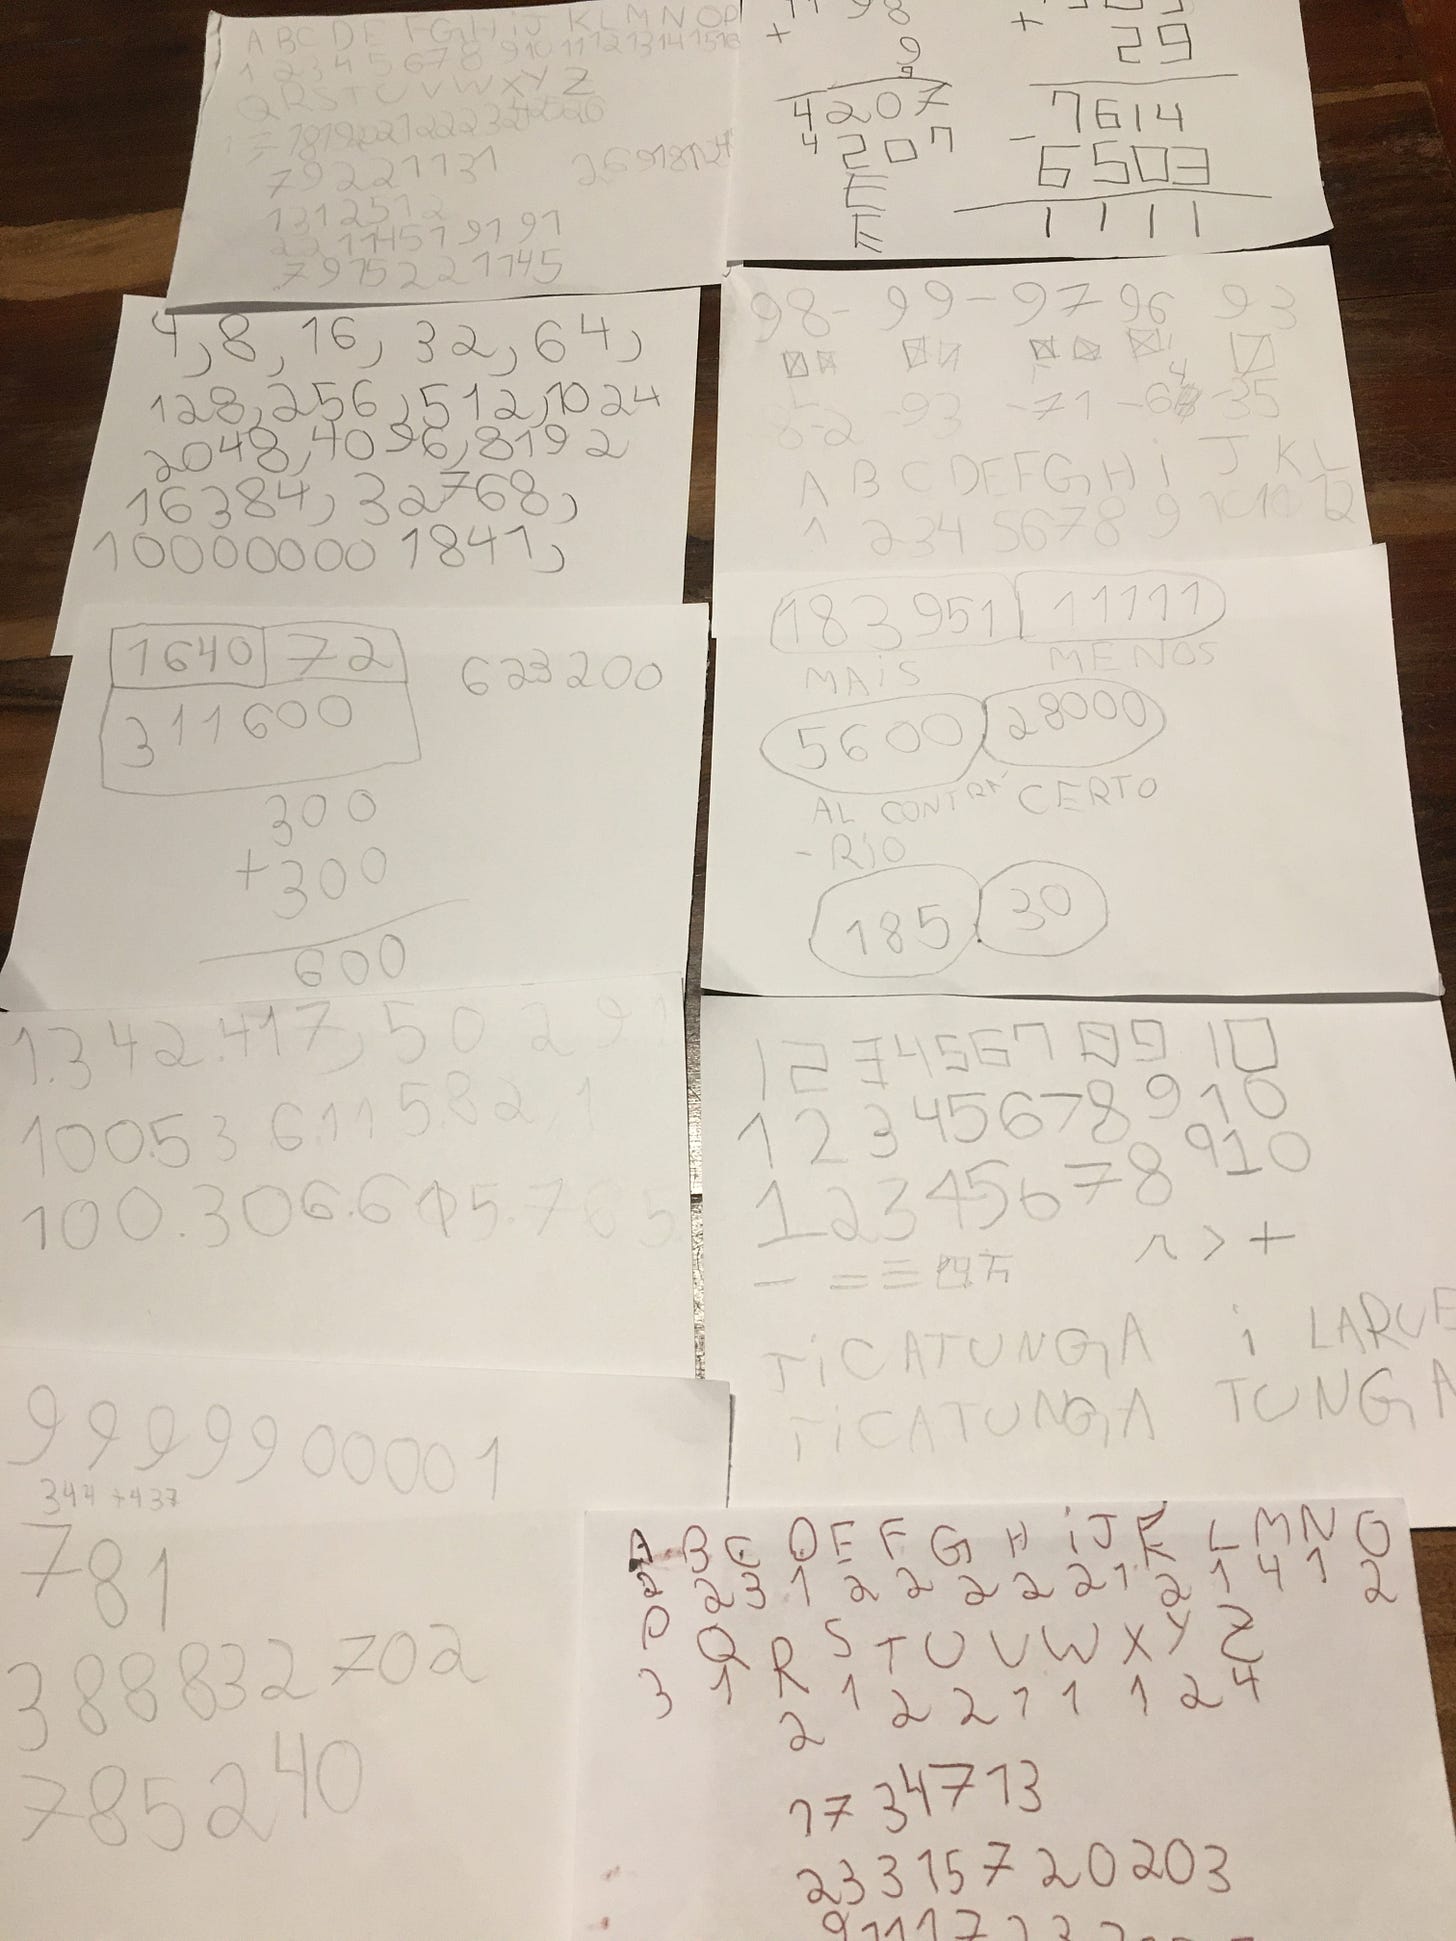 A B C D E F G H i J K L M N O P
1 2 3 4 5 6 7 8 9 10 11 12 13 14 15 16
Q R S T U V W X Y Z
79221131
1312512
7915221145
+ 9
4207
4207
+ 29
7614
- 6503
1111
4, 8, 16, 32, 64,
128, 256, 512, 1024
2048, 4096, 8192
16384, 32768,
10000000 1841,
98 - 99 - 97 - 96 93
85-2 -93 -71 -64 -35
A B C D E F G H i J K L
1 2 3 4 5 6 7 8 9 10 12
1640 72 623200
311600
300
+300
600
183951 11111
MAiS MENOS
5600 28000
AL CONTRA CERTO
-RiO
185 30
1.342.417,50 2 91
100.53 6.115.82,1
100.306.615.7
1 2 3 4 5 6 7 8 9 10
1 2 3 4 5 6 7 8 9 10
1 2 3 4 5 6 7 8 9 10
> +
- = ≡
TiCATUNGA i LARUE
TiCATUNGA TUNGA
9999900001
344+437
781
388832702
785240
A B C D E F G H i J K L M N O
2 3 1 2 2 2 2 2 1 2 1 4 1 2
P Q R S T U V W X Y Z
3 1 2 1 2 2 1 1 1 2 4
1734713
23315720203